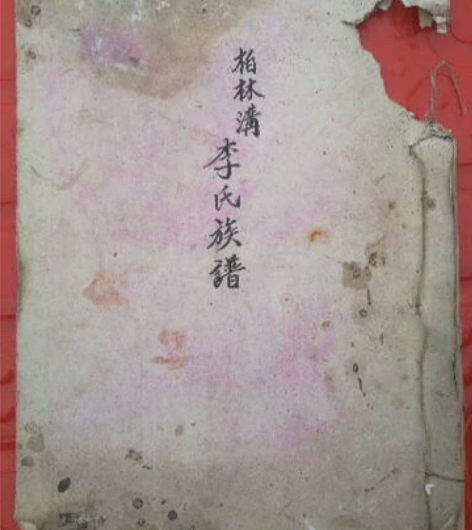 柏林溝
李氏族譜